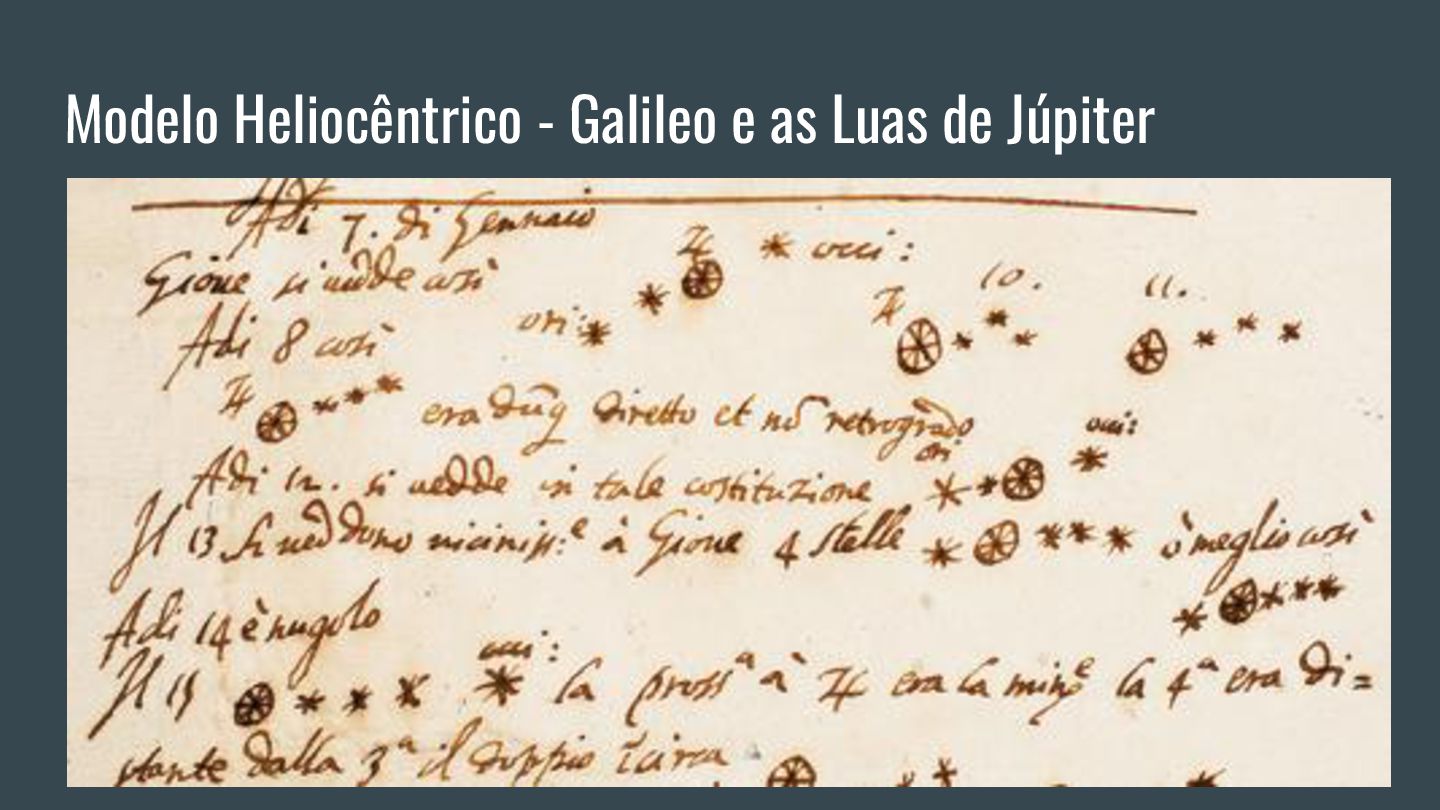 Modelo Heliocêntrico - Galileo e as Luas de Júpiter
Adi 7. di Gennaio
Gioue si uedde così ♃ occi:
Adi 8 così ori: ♃ 10. 11.
♃ era dūq diretto et nō retrogrado
Adi 12. si uedde in tale costituzione ori occi:
Il 13 si ueddono uiciniss:e à Gioue 4 stelle ò meglio così
Adi 14 è nugolo
Il 15 occi: la pross.a à ♃ era la min.e la 4.a era di=
stante dalla 3.a il doppio ĩ circa